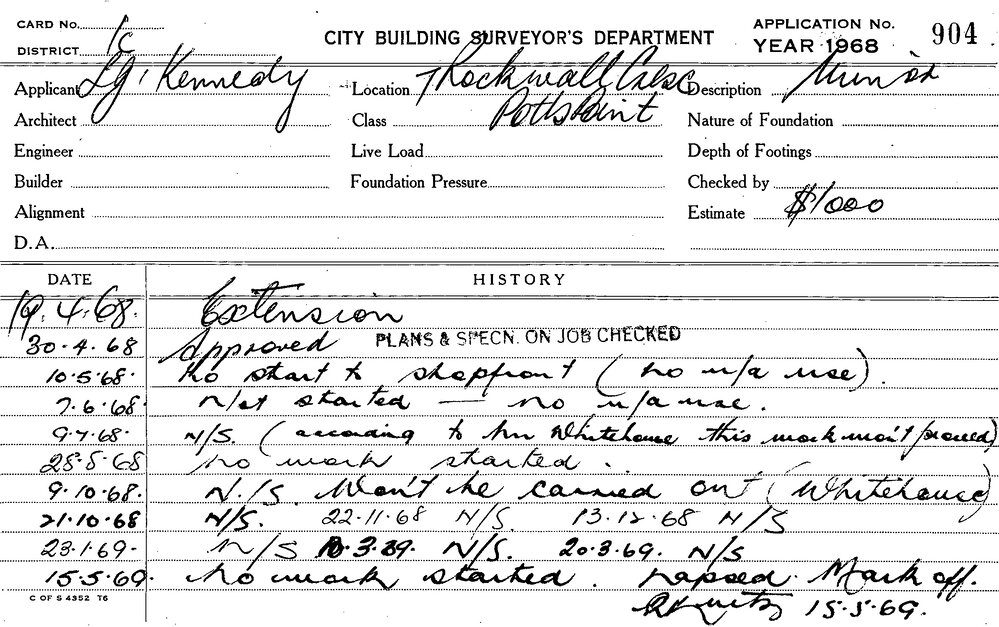 CARD No.
CITY BUILDING SURVEYOR'S DEPARTMENT
APPLICATION No. 904
DISTRICT 1c
YEAR 1968
Applicant Lg. Kennedy Location 7 Rockwall Cresc Description
Architect Class Potts Point Nature of Foundation
Engineer Live Load Depth of Footings
Builder Foundation Pressure Checked by
Alignment Estimate $1000
D.A.
DATE HISTORY
19.4.68. Extension
30.4.68 Approved PLANS & SPECN. ON JOB CHECKED
10.5.68. No start to shopfront (no u/a use).
7.6.68. Not started — no u/a use.
9.7.68. N/S. (according to Mr Whitehouse this work won't proceed)
28.8.68 no work started.
9.10.68. N./S. Won't be carried out (Whitehouse)
21.10.68 N/S. 22.11.68 N/S. 13.12.68 N/S
23.1.69. N/S 3.69. N/S. 20.3.69. N/S
15.5.69. No work started. Lapsed. Mark off.
15.5.69.
C OF S 4352 T6